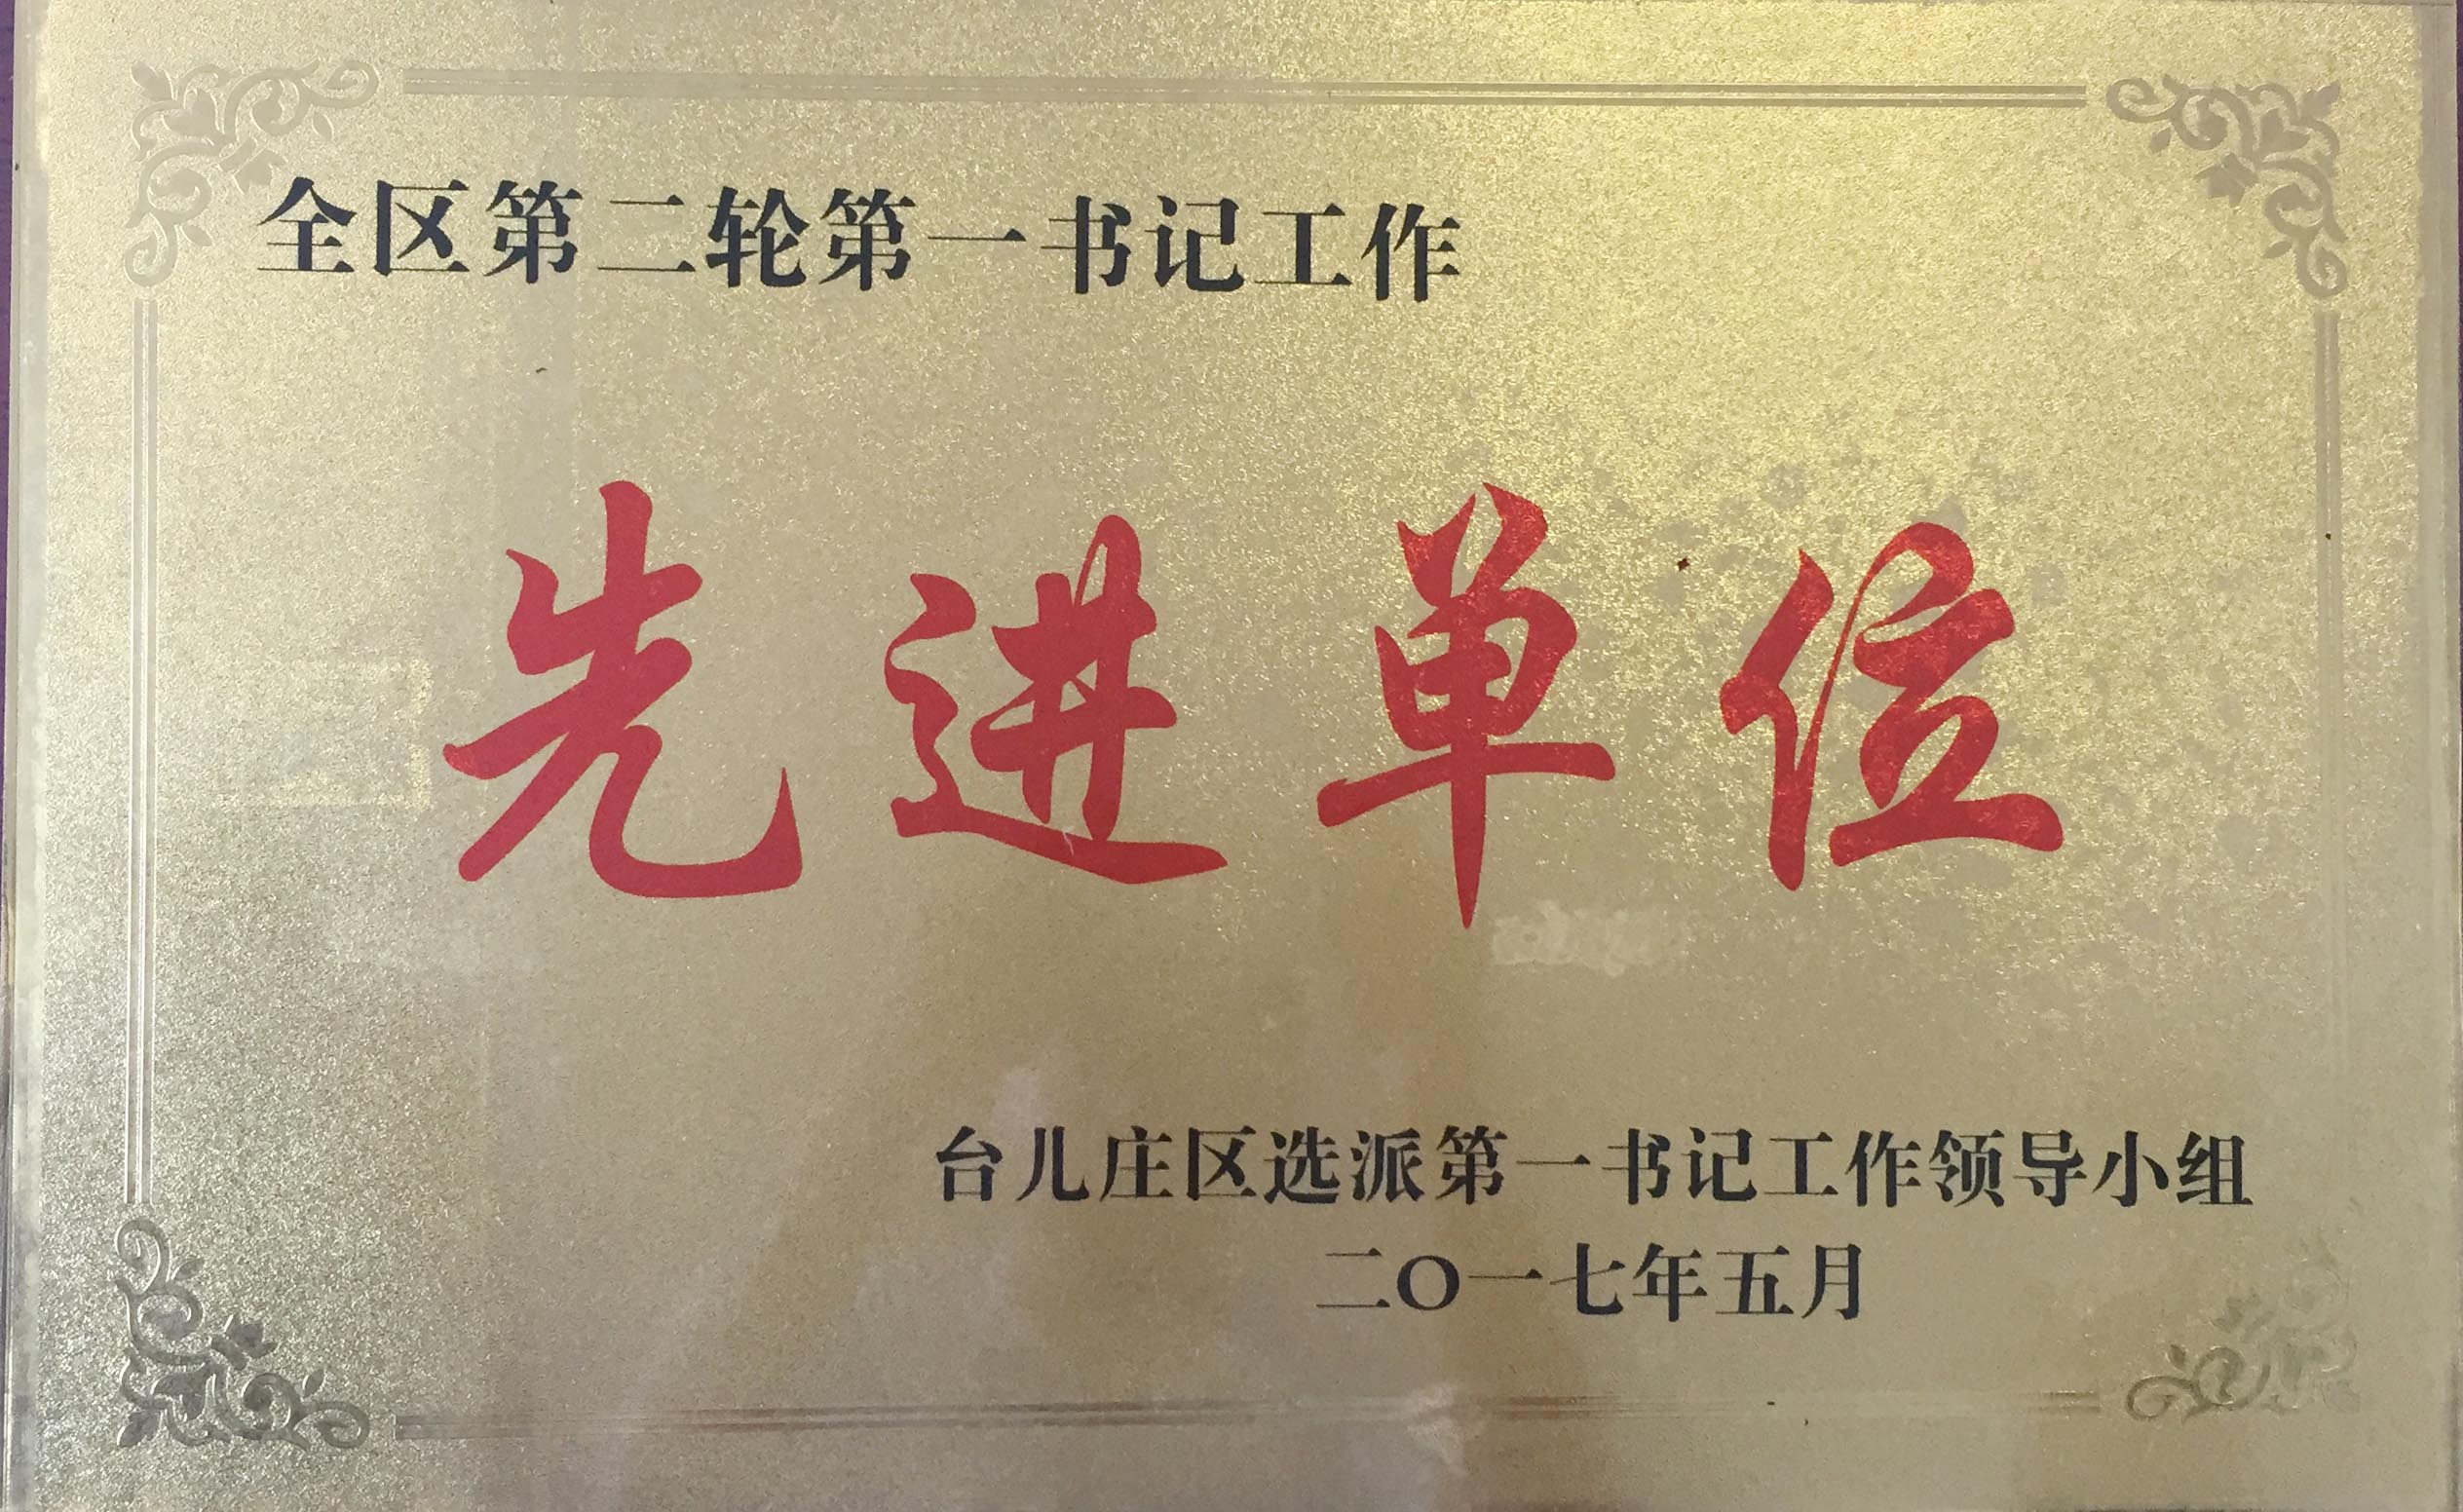 全区第二轮第一书记工作
先进单位
台儿庄区选派第一书记工作领导小组
二〇一七年五月